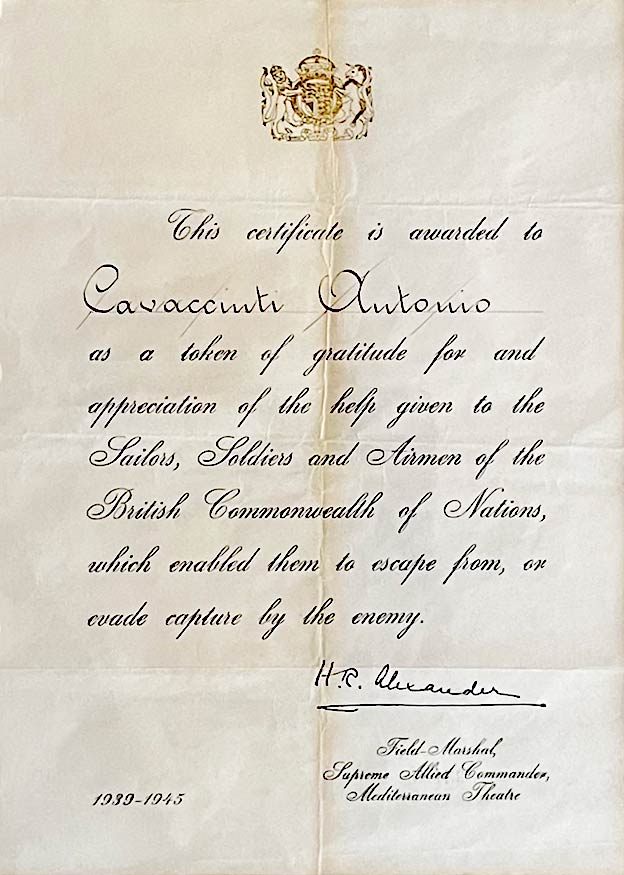 This certificate is awarded to
Cavaccinti Antonio
as a token of gratitude for and
appreciation of the help given to the
Sailors, Soldiers and Airmen of the
British Commonwealth of Nations,
which enabled them to escape from, or
evade capture by the enemy.
H.R. Alexander
Field-Marshal,
Supreme Allied Commander,
Mediterranean Theatre
1939-1945